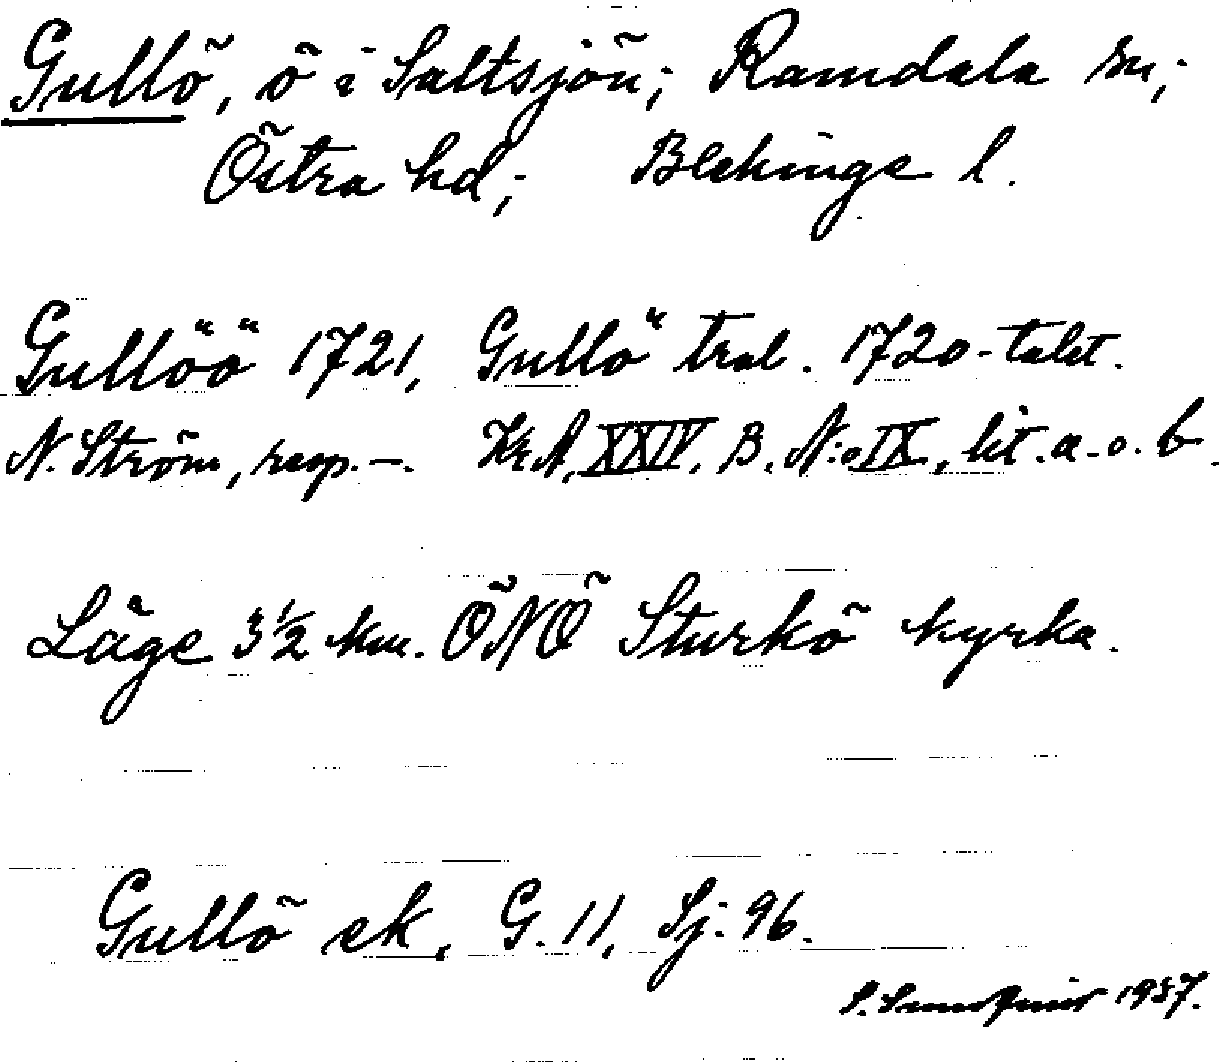 Gullö, ö i Saltsjön; Ramdala sn;
Östra hd; Blekinge l.
Gullöö 1721, Gullö tral. 1720-talet.
N. Ström, resp. –. Kr.A. XXIV. B. N:o IX, lit. a. o. b.
Läge 3 1/2 km. ÖNÖ Sturkö kyrka.
Gullö ek, G. 11, Sj. 96.
S. 1937.